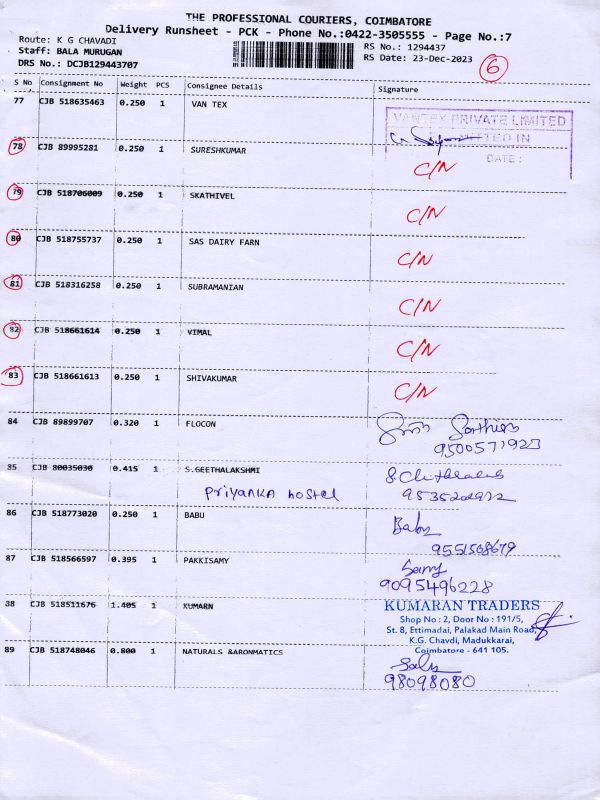 THE PROFESSIONAL COURIERS, COIMBATORE
Delivery Runsheet - PCK - Phone No.:0422-3505555 - Page No.:7
Route: K G CHAVADI
RS No.: 1294437
Staff: BALA MURUGAN
RS Date: 23-Dec-2023
DRS No.: DCJB129443707
6
S No Consignment No Weight PCS Consignee Details Signature
77 CJB 518635463 0.250 1 VAN TEX
VANTEX PRIVATE LIMITED
IN
DATE :
78 CJB 89995281 0.250 1 SURESHKUMAR C/N
79 CJB 518706009 0.250 1 SKATHIVEL C/N
80 CJB 518755737 0.250 1 SAS DAIRY FARN C/N
81 CJB 518316258 0.250 1 SUBRAMANIAN C/N
82 CJB 518661614 0.250 1 VIMAL C/N
83 CJB 518661613 0.250 1 SHIVAKUMAR C/N
84 CJB 89899707 0.320 1 FLOCON
9500571923
85 CJB 80035030 0.415 1 S.GEETHALAKSHMI
Priyanka hostel
86 CJB 518773020 0.250 1 BABU Babu
9551508679
87 CJB 518566597 0.395 1 PAKKISAMY
9095496228
38 CJB 518511676 1.405 1 KUMARN
KUMARAN TRADERS
Shop No : 2, Door No : 191/5,
St. 8, Ettimadai, Palakad Main Road,
K.G. Chavdi, Madukkarai,
Coimbatore - 641 105.
89 CJB 518748046 0.800 1 NATURALS &ARONMATICS
98098080